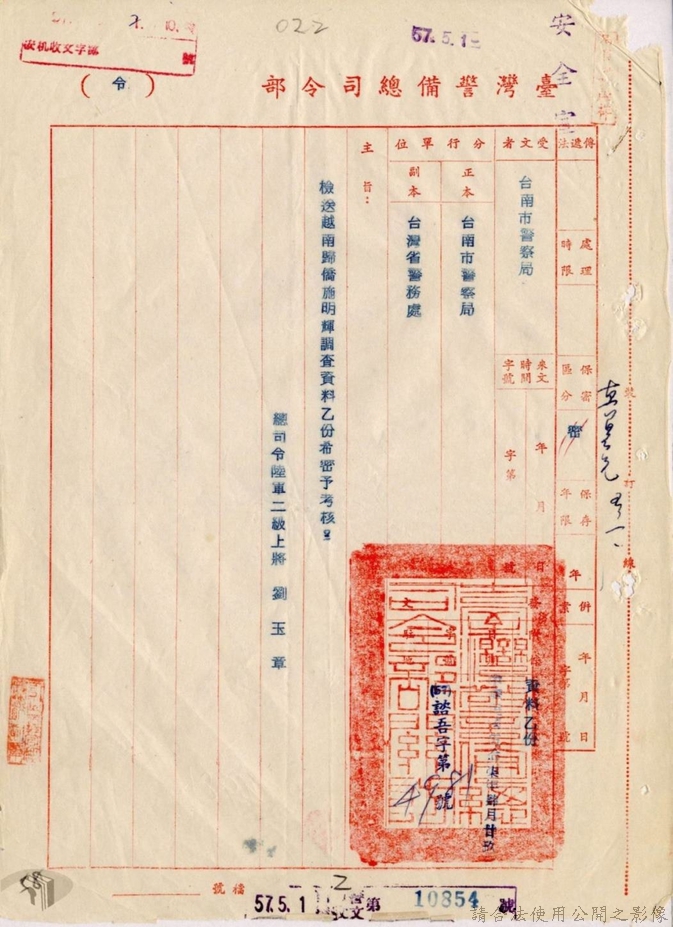 022
57.5.1
安全室
收文字號
號
臺灣警備總司令部
（令）
傳遞法
處理時限
保密區分
密
保存年限
裝
訂
線
年 月 日
併案
字第 號
受文者
台南市警察局
來文時間字號
年 月 日
字第 號
分行單位
正本
台南市警察局
副本
台灣省警務處
資料乙份
(57)諮吾字第
號
主旨：
檢送越南歸僑施明輝調查資料乙份希密予考核。
總司令陸軍二級上將 劉玉章
檔號
2
57.5.1
收文第 10854 號
58
請合法使用公開之影像